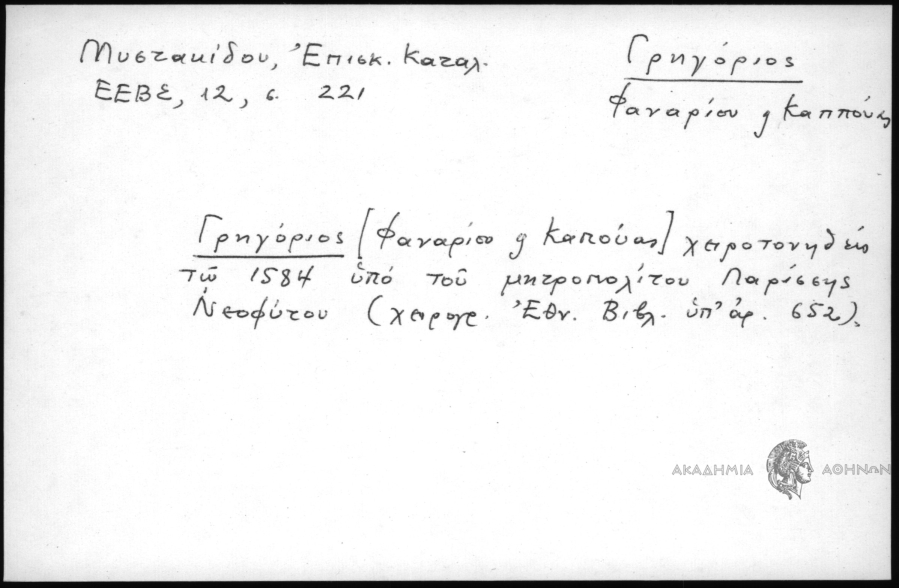 Μυστακίδου, Ἐπισκ. Καταλ.
ΕΕΒΣ, 12, σ. 221
Γρηγόριος
Φαναρίου ϗ Καππούας
Γρηγόριος [Φαναρίου ϗ Καπούας] χειροτονηθείς
τῶ 1584 ὑπό τοῦ μητροπολίτου Λαρίσσης
Νεοφύτου (χειρογρ. Ἐθν. Βιβλ. ὑπ' ἀρ. 652).
ΑΚΑΔΗΜΙΑ ΑΘΗΝΩΝ